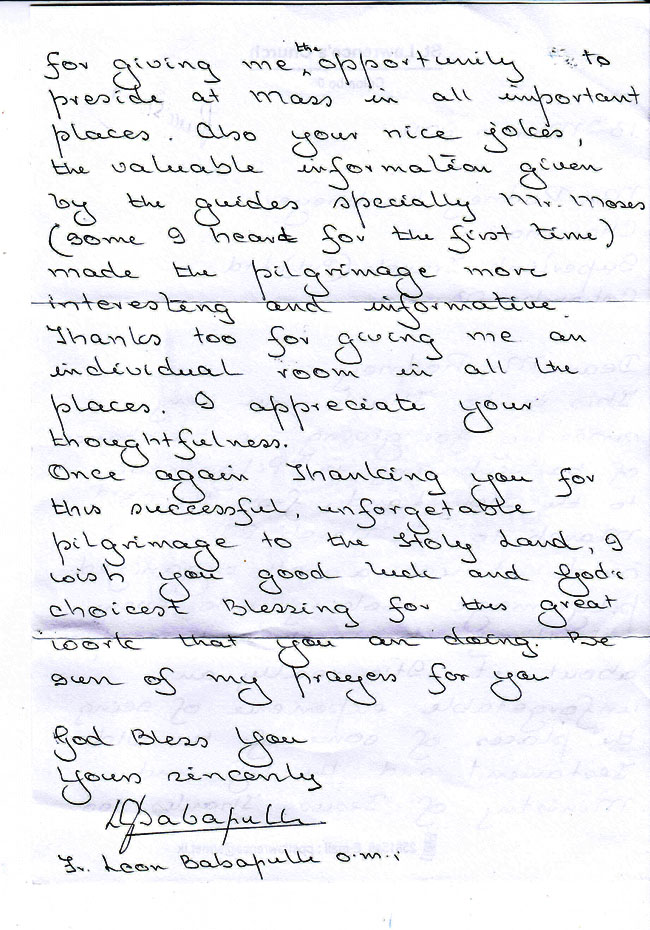 for giving me the opportunity to
preside at Mass in all important
places. Also your nice jokes,
the valuable information given
by the guides specially Mr. Moses
(some I heard for the first time)
made the pilgrimage more
interesting and informative.
Thanks too for giving me an
individual room in all the
places. I appreciate your
thoughtfulness.
Once again Thanking you for
this successful, unforgetable
pilgrimage to the Holy Land, I
wish you good luck and God's
choicest Blessing for this great
work that you are doing. Be
sure of my prayers for you
God Bless You
Yours sincerely
Fr. Leon Babapulle o.m.i